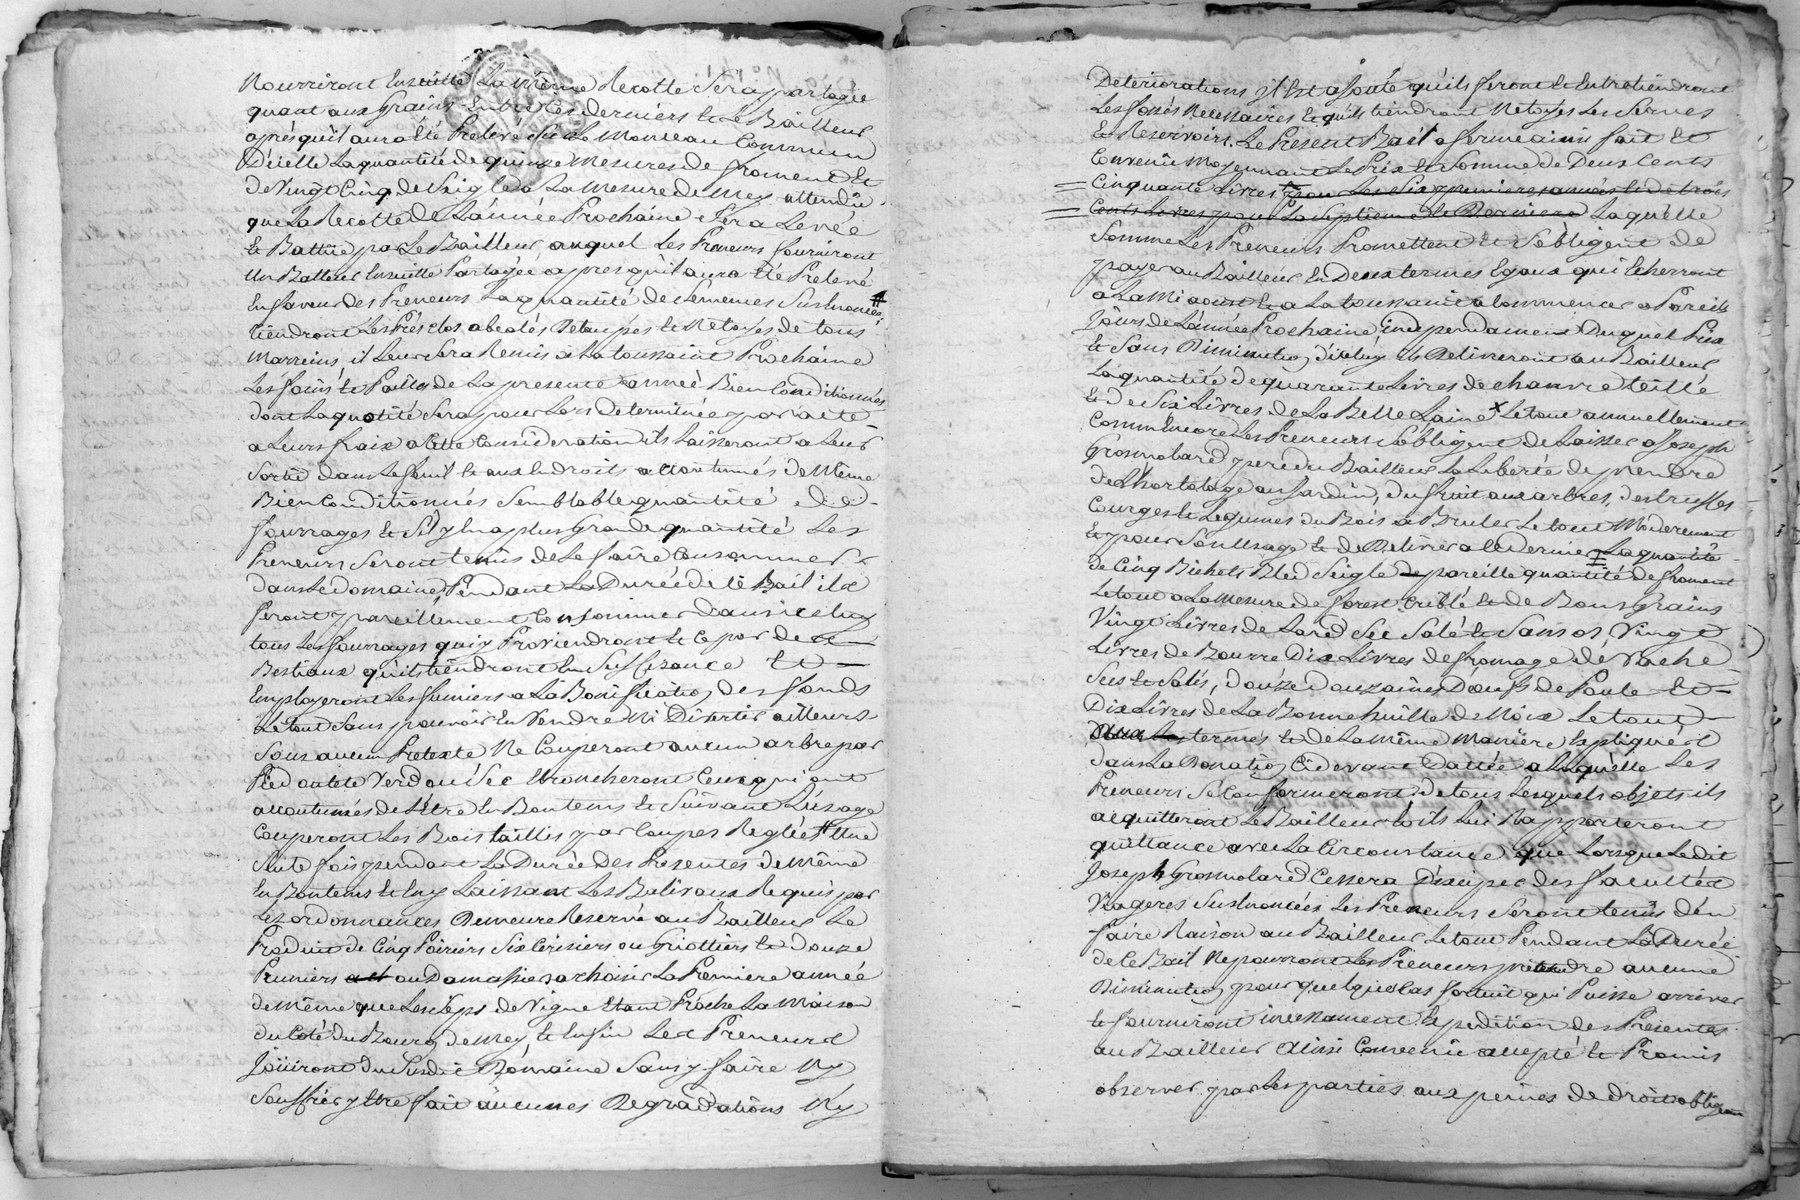 Nourriront Ensuitte La même Recotte Sera partagée
quant aux Grains Entre Ces derniers et Le Bailleur
apres qu'il aura Eté Prelevé Sur Le Monceau Commun
D'icelle La quantité de quinze Mesures de froment Et
de Vingt Cinq de Seigle a La Mesure de Mey attendu
que La Recotte de L'année Prochaine Sera Levée
Et Battüe par Le Bailleur auquel Les Preneurs fourniront
Un Batteur Ensuitte Partagée apres qu'il aura Eté Prelevé
En faveur des Preneurs La quantité de Semences Susenoncées #
tiendront Les Prés Clos Netoyés de tous
il Leur Sera Remis a La toussaint Prochaine
Les foins et Pailles de La presente année Bien Conditionnés
dont La quotité Sera pour Lors Determinée par acte
a Leurs fraix a Cette Consideration ils Laisseront a Leur
Sortie dans Le fenil et aux Endroits accoutumés de Même
Bien Conditionnés Semblable quantité de
fourrages et S'il y En a plus Grande quantité Les
Preneurs Seront tenus de Le faire Consommer
dans Le domaine, Pendant La Durée de Ce Bail ils
feront pareillement Consommer dans iceluy
tous Les fourrages qui y Proviendront et Ce par des
Bestiaux qu'ils tiendront En Suffisance Et
Employeront Les fumiers a La Bonification des fonds
Le tout Sans pouvoir En Vendre Ni Divertir ailleurs
Sous aucun Pretexte Ne Couperont aucun arbre par
Pied ou tete Verd ou Sec Ebrancheront Ceux qui ont
accoutumés de L'être En Bontems et Suivant L'usage
Couperont Les Bois taillis par Coupes Reglées # Une
Seule fois pendant La Durée Des Presentes de Même
En Bontems et En y Laissant Les Baliveaux Requis par
Les ordonnances Demeure Reservé au Bailleur Le
Produit de Cinq Poiriers Six Cerisiers ou Griottiers et Douze
Pruniers ou Damassiers a choisir La Premiere année
de Même que Les Ceps de Vigne Etant Proche La Maison
du Coté du Bourg de Mey, et Enfin Les Preneurs
Joüiront du Susdit Domaine Sans y faire Ny
Souffrir y Etre fait aucunes Degradations Ny
Deteriorations il Est ajouté qu'ils feront et Entretiendront
Les fossés Necessaires et qu'ils tiendront Netoyés Les Serves
Et Reservoirs. Le Present Bail a ferme ainsi fait Et
Convenu Moyennant Le Prix et Somme de Deux Cents
Cinquante Livres pour Les Six premieres années et de trois
Cents Livres pour La Septieme et Derniere Laquelle
Somme Les Preneurs Promettent et S'obligent de
payer au Bailleur En Deux termes Egaux qui Echerront
a La Mi aoust et a La toussaint a Commencer a Pareils
Jours de L'année Prochaine independament Duquel Prix
Et Sans Diminution d'iceluy ils Delivreront au Bailleur
La quantité de quarante Livres de chanvre teillé
Et de Six Livres de La Belle Laine × Le tout annuellement
Comm'Encore Les Preneurs S'obligent de Laisser a Joseph
Grosmolard pere du Bailleur La Liberté de prendre
de L'hortolage au Jardin, du fruit aux arbres, des truffes
Courges et Legumes du Bois a Bruler Le tout Moderement
Et pour Son Usage et de Delivrer a Ce Dernier La quantité
de Cinq Bichets Bled Seigle pareille quantité de froment
Le tout a La Mesure de forest Criblé et de Bons Grains
Vingt Livres de Lard Sec Salé et Sans os, Vingt
Livres de Beurre Dix Livres de fromage de Vache
Secs et Salés, douze Douzaines D'œufs de Poule Et
Dix Livres de La Bonne huille de Noix Le tout
Aux termes et de La Même Maniere Expliquée
dans La Donation Cidevant Dattée a Laquelle Les
Preneurs Se Conformeront de tous Lesquels objets ils
acquitteront Le Bailleur Et ils Lui Rapporteront
quittance avec La Circonstance que Lorsque Ledit
Joseph Grosmolard Cessera D'exiger des facultés
Viageres Susenoncées Les Preneurs Seront tenus d'en
faire Raison au Bailleur Le tout Pendant La Durée
de Ce Bail Ne pourront Les Preneurs pretendre aucune
Diminution pour quelque Cas fortuit qui Puisse arriver
Et fourniront incessament Expedition des Presentes
au Bailleur Ainsi Convenu accepté et Promis
observer par Les parties aux peines de droit obligeant